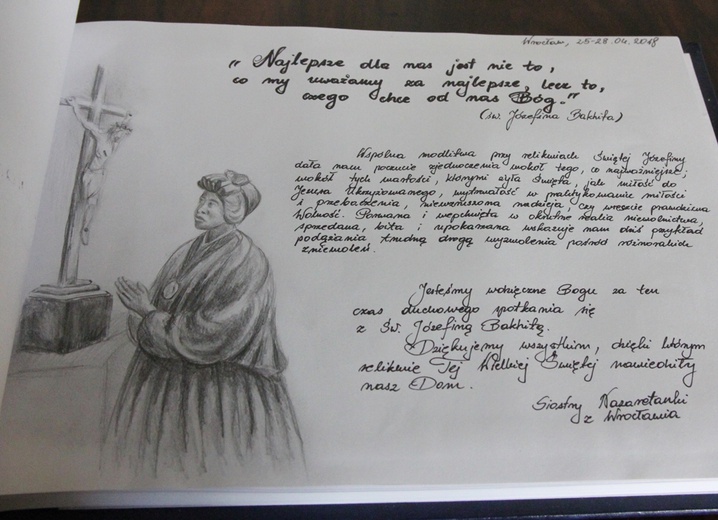 Wrocław, 25-28.04.2018
"Najlepsze dla nas jest nie to,
co my uważamy za najlepsze, lecz to,
czego chce od nas Bóg."
(św. Józefina Bakhita)
Wspólna modlitwa przy relikwiach Świętej Józefiny
dała nam poczucie zjednoczenia wokół tego, co najważniejsze;
wokół tych wartości, którymi żyła Święta, jak miłość do
Jezusa Ukrzyżowanego, wytrwałość w praktykowaniu miłości
i przebaczenia, niewzruszona nadzieja, czy wreszcie prawdziwa
Wolność. Porwana i wepchnięta w okrutne realia niewolnictwa,
sprzedana, bita i upokarzana wskazuje nam dziś przykład
podążania trudną drogą wyzwolenia pośród różnorakich
zniewoleń.
Jesteśmy wdzięczne Bogu za ten
czas duchowego spotkania się
z Św. Józefiną Bakhitą.
Dziękujemy wszystkim, dzięki którym
relikwie Tej Wielkiej Świętej nawiedziły
nasz Dom.
Siostry Nazaretanki
z Wrocławia